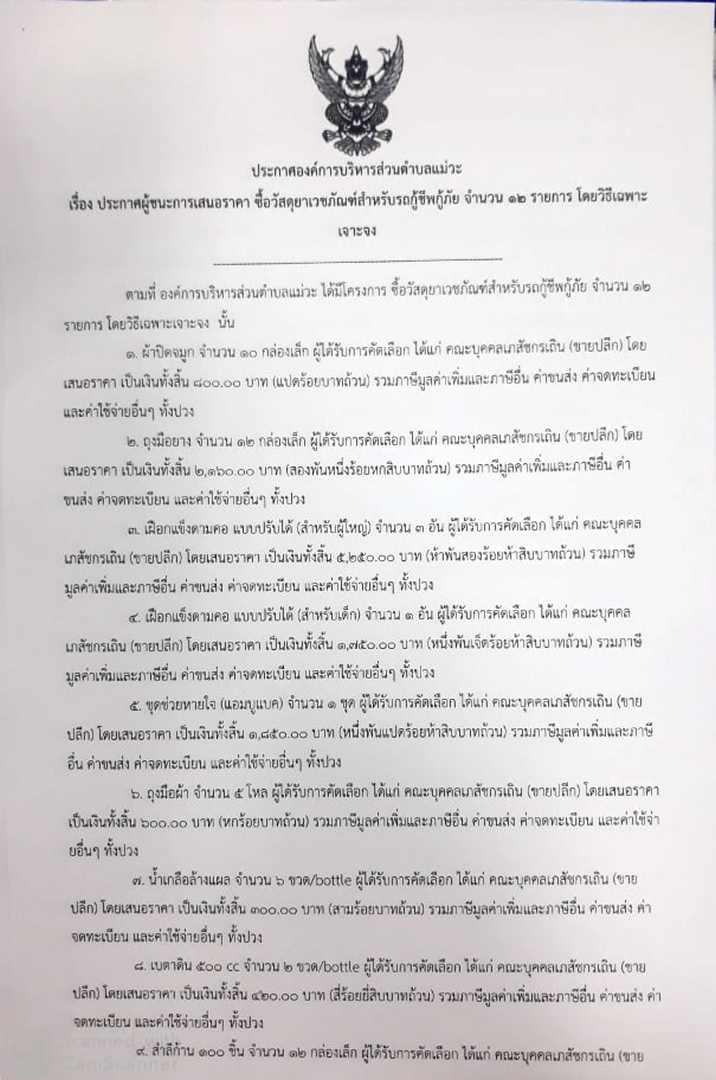 ประกาศองค์การบริหารส่วนตำบลแม่วะ
เรื่อง ประกาศผู้ชนะการเสนอราคา ซื้อวัสดุยาเวชภัณฑ์สำหรับรถกู้ชีพกู้ภัย จำนวน ๑๒ รายการ โดยวิธีเฉพาะ
เจาะจง
ตามที่ องค์การบริหารส่วนตำบลแม่วะ ได้มีโครงการ ซื้อวัสดุยาเวชภัณฑ์สำหรับรถกู้ชีพกู้ภัย จำนวน ๑๒
รายการ โดยวิธีเฉพาะเจาะจง นั้น
๑. ผ้าปิดจมูก จำนวน ๑๐ กล่องเล็ก ผู้ได้รับการคัดเลือก ได้แก่ คณะบุคคลเภสัชกรเถิน (ขายปลีก) โดย
เสนอราคา เป็นเงินทั้งสิ้น ๘๐๐.๐๐ บาท (แปดร้อยบาทถ้วน) รวมภาษีมูลค่าเพิ่มและภาษีอื่น ค่าขนส่ง ค่าจดทะเบียน
และค่าใช้จ่ายอื่นๆ ทั้งปวง
๒. ถุงมือยาง จำนวน ๑๒ กล่องเล็ก ผู้ได้รับการคัดเลือก ได้แก่ คณะบุคคลเภสัชกรเถิน (ขายปลีก) โดย
เสนอราคา เป็นเงินทั้งสิ้น ๒,๑๖๐.๐๐ บาท (สองพันหนึ่งร้อยหกสิบบาทถ้วน) รวมภาษีมูลค่าเพิ่มและภาษีอื่น ค่า
ขนส่ง ค่าจดทะเบียน และค่าใช้จ่ายอื่นๆ ทั้งปวง
๓. เฝือกแข็งดามคอ แบบปรับได้ (สำหรับผู้ใหญ่) จำนวน ๓ อัน ผู้ได้รับการคัดเลือก ได้แก่ คณะบุคคล
เภสัชกรเถิน (ขายปลีก) โดยเสนอราคา เป็นเงินทั้งสิ้น ๕,๒๕๐.๐๐ บาท (ห้าพันสองร้อยห้าสิบบาทถ้วน) รวมภาษี
มูลค่าเพิ่มและภาษีอื่น ค่าขนส่ง ค่าจดทะเบียน และค่าใช้จ่ายอื่นๆ ทั้งปวง
๔. เฝือกแข็งดามคอ แบบปรับได้ (สำหรับเด็ก) จำนวน ๑ อัน ผู้ได้รับการคัดเลือก ได้แก่ คณะบุคคล
เภสัชกรเถิน (ขายปลีก) โดยเสนอราคา เป็นเงินทั้งสิ้น ๑,๗๕๐.๐๐ บาท (หนึ่งพันเจ็ดร้อยห้าสิบบาทถ้วน) รวมภาษี
มูลค่าเพิ่มและภาษีอื่น ค่าขนส่ง ค่าจดทะเบียน และค่าใช้จ่ายอื่นๆ ทั้งปวง
๕. ชุดช่วยหายใจ (แอมบูแบค) จำนวน ๑ ชุด ผู้ได้รับการคัดเลือก ได้แก่ คณะบุคคลเภสัชกรเถิน (ขาย
ปลีก) โดยเสนอราคา เป็นเงินทั้งสิ้น ๑,๘๕๐.๐๐ บาท (หนึ่งพันแปดร้อยห้าสิบบาทถ้วน) รวมภาษีมูลค่าเพิ่มและภาษี
อื่น ค่าขนส่ง ค่าจดทะเบียน และค่าใช้จ่ายอื่นๆ ทั้งปวง
๖. ถุงมือผ้า จำนวน ๕ โหล ผู้ได้รับการคัดเลือก ได้แก่ คณะบุคคลเภสัชกรเถิน (ขายปลีก) โดยเสนอราคา
เป็นเงินทั้งสิ้น ๖๐๐.๐๐ บาท (หกร้อยบาทถ้วน) รวมภาษีมูลค่าเพิ่มและภาษีอื่น ค่าขนส่ง ค่าจดทะเบียน และค่าใช้จ่า
ยอื่นๆ ทั้งปวง
๗. น้ำเกลือล้างแผล จำนวน ๖ ขวด/bottle ผู้ได้รับการคัดเลือก ได้แก่ คณะบุคคลเภสัชกรเถิน (ขาย
ปลีก) โดยเสนอราคา เป็นเงินทั้งสิ้น ๓๐๐.๐๐ บาท (สามร้อยบาทถ้วน) รวมภาษีมูลค่าเพิ่มและภาษีอื่น ค่าขนส่ง ค่า
จดทะเบียน และค่าใช้จ่ายอื่นๆ ทั้งปวง
๘. เบตาดิน ๕๐๐ cc จำนวน ๒ ขวด/bottle ผู้ได้รับการคัดเลือก ได้แก่ คณะบุคคลเภสัชกรเถิน (ขาย
ปลีก) โดยเสนอราคา เป็นเงินทั้งสิ้น ๔๒๐.๐๐ บาท (สี่ร้อยยี่สิบบาทถ้วน) รวมภาษีมูลค่าเพิ่มและภาษีอื่น ค่าขนส่ง ค่า
จดทะเบียน และค่าใช้จ่ายอื่นๆ ทั้งปวง
๙. สำลีก้าน ๑๐๐ ชิ้น จำนวน ๑๒ กล่องเล็ก ผู้ได้รับการคัดเลือก ได้แก่ คณะบุคคลเภสัชกรเถิน (ขาย